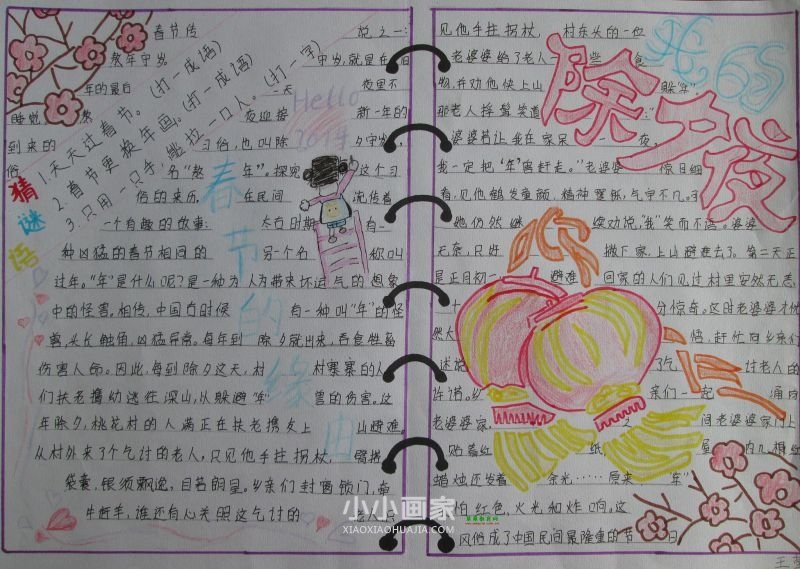 春节传说之一:
熬年守岁
守岁,就是在旧
年的最后一天
夜里不
睡觉,熬夜迎接新一年的
到来的习俗,也叫除夕守岁,
俗名“熬年”。探究这个习
俗的来历,在民间流传着
一个有趣的故事:太古时期有一
种凶猛的
过年。“年”是什么呢?是一种为人们带来坏运气的想象
中的怪兽。相传,中国古时候有一种叫“年”的怪
兽,头长触角,凶猛异常。每年到除夕就出来,吞食牲畜
伤害人命。因此,每到除夕这天,村村寨寨的人
们扶老携幼逃往深山,以躲避“年”兽的伤害。这
年除夕,桃花村的人满正在扶老携女上山避难。
从村外来了个乞讨的老人,只见他手拄拐杖,臂搭
袋囊,银须飘逸,目若朗星。乡亲们封窗锁门,牵
牛赶羊,谁还有心关照这乞讨的
猜谜语
1.天天过春节。(打一成语)
2.春节更换年画。(打一成语)
3.只用一只手,能拉一口人。(打一字)
Hello
2019
春节的缘由
见他手拄拐杖,村东头的一位
老婆婆给了老人一些食
物,并劝他快上山躲“年”
那老人捋髯笑道:“
婆婆若让我在家呆一夜,
我一定把‘年’兽赶走。”老婆婆惊目细
看,见他鹤发童颜,精神矍铄,气宇不凡。可
她仍然继续劝说,我笑而不语。婆婆
无奈,只好撇下家,上山避难去了。第二天正
是正月初一,避难回家的人们见过村里安然无恙,
十分惊奇。这时老婆婆才恍
然大悟,赶忙向乡亲们
述说了乞讨老人的
许诺。乡亲们一起涌向
老婆婆家,只见婆婆家门上
贴着红纸,屋内几根红
蜡烛还发着余光……原来“年”
怕红色,火光和炸响。这
风俗成了中国民间最隆重的节日
我的
除夕夜
小小画家
XIAOXIAOHUAJIA.COM